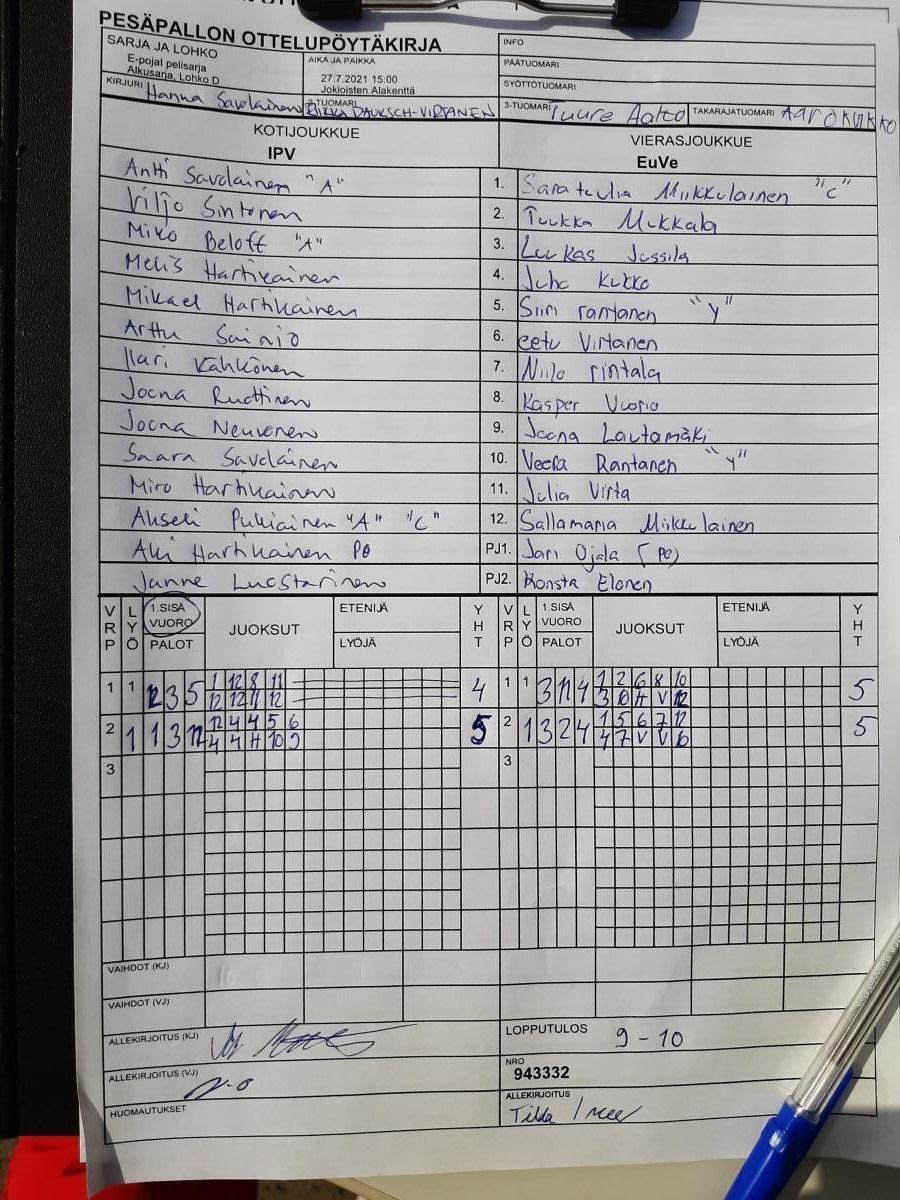 PESÄPALLON OTTELUPÖYTÄKIRJA
SARJA JA LOHKO
E-pojat pelisarja
Alkusarja, Lohko D
AIKA JA PAIKKA
27.7.2021 15:00
Jokioisten Alakenttä
INFO
PÄÄTUOMARI
SYÖTTÖTUOMARI
KIRJURI Hanna Savolainen
2-TUOMARI DAUKSCH-VIRTANEN
3-TUOMARI Tuure Aalto
TAKARAJATUOMARI AARO KUKKO
KOTIJOUKKUE
IPV
VIERASJOUKKUE
EuVe
Antti Savolainen "A" 1. Miikkulainen "C"
Viljo Sintonen 2. Tuukka Mukkala
Miko Beloff "A" 3. Luukas Jussila
Melis Hartikainen 4. Juho Kukko
Mikael Hartikainen 5. Siiri rantanen "Y"
Arttu Sainio 6. eetu Virtanen
Ilari Kähkönen 7. Niilo rintala
Joona Ruottinen 8. Kasper Vuorio
Joona Neuvonen 9. Joona Lautamäki
Saara Savolainen 10. Veera Rantanen "Y"
Miro Hartikainen 11. Julia Virta
Akseli Pukiainen "A" "C" 12. Sallamaria Miikkulainen
Aki Hartikainen PJ1. Jari Ojala (PO)
Janne Luostarinen PJ2. Konsta Elonen
VRP LYÖ 1.SISÄ VUORO PALOT JUOKSUT ETENIJÄ LYÖJÄ YHT VRP LYÖ 1.SISÄ VUORO PALOT JUOKSUT ETENIJÄ LYÖJÄ YHT
1 1 2 3 5 1 12 8 11 4 1 1 3 11 4 1 2 6 8 10 5
12 12 11 12 3 10 H V 12
2 1 1 3 12 12 4 4 5 6 5 2 1 3 2 4 1 5 6 7 12 5
4 4 H 10 9 4 7 V V 6
3 3
VAIHDOT (KJ)
VAIHDOT (VJ)
ALLEKIRJOITUS (KJ)
LOPPUTULOS 9 - 10
ALLEKIRJOITUS (VJ)
NRO
943332
HUOMAUTUKSET
ALLEKIRJOITUS
Tilda